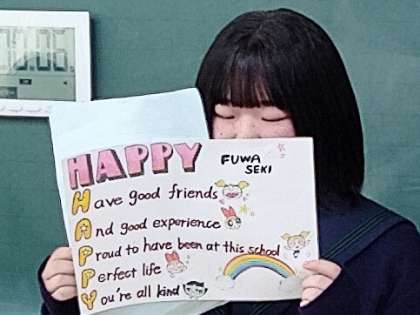 HAPPY
FUWA
SEKI
Have good friends
And good experience
Proud to have been at this school
Perfect life
You're all kind